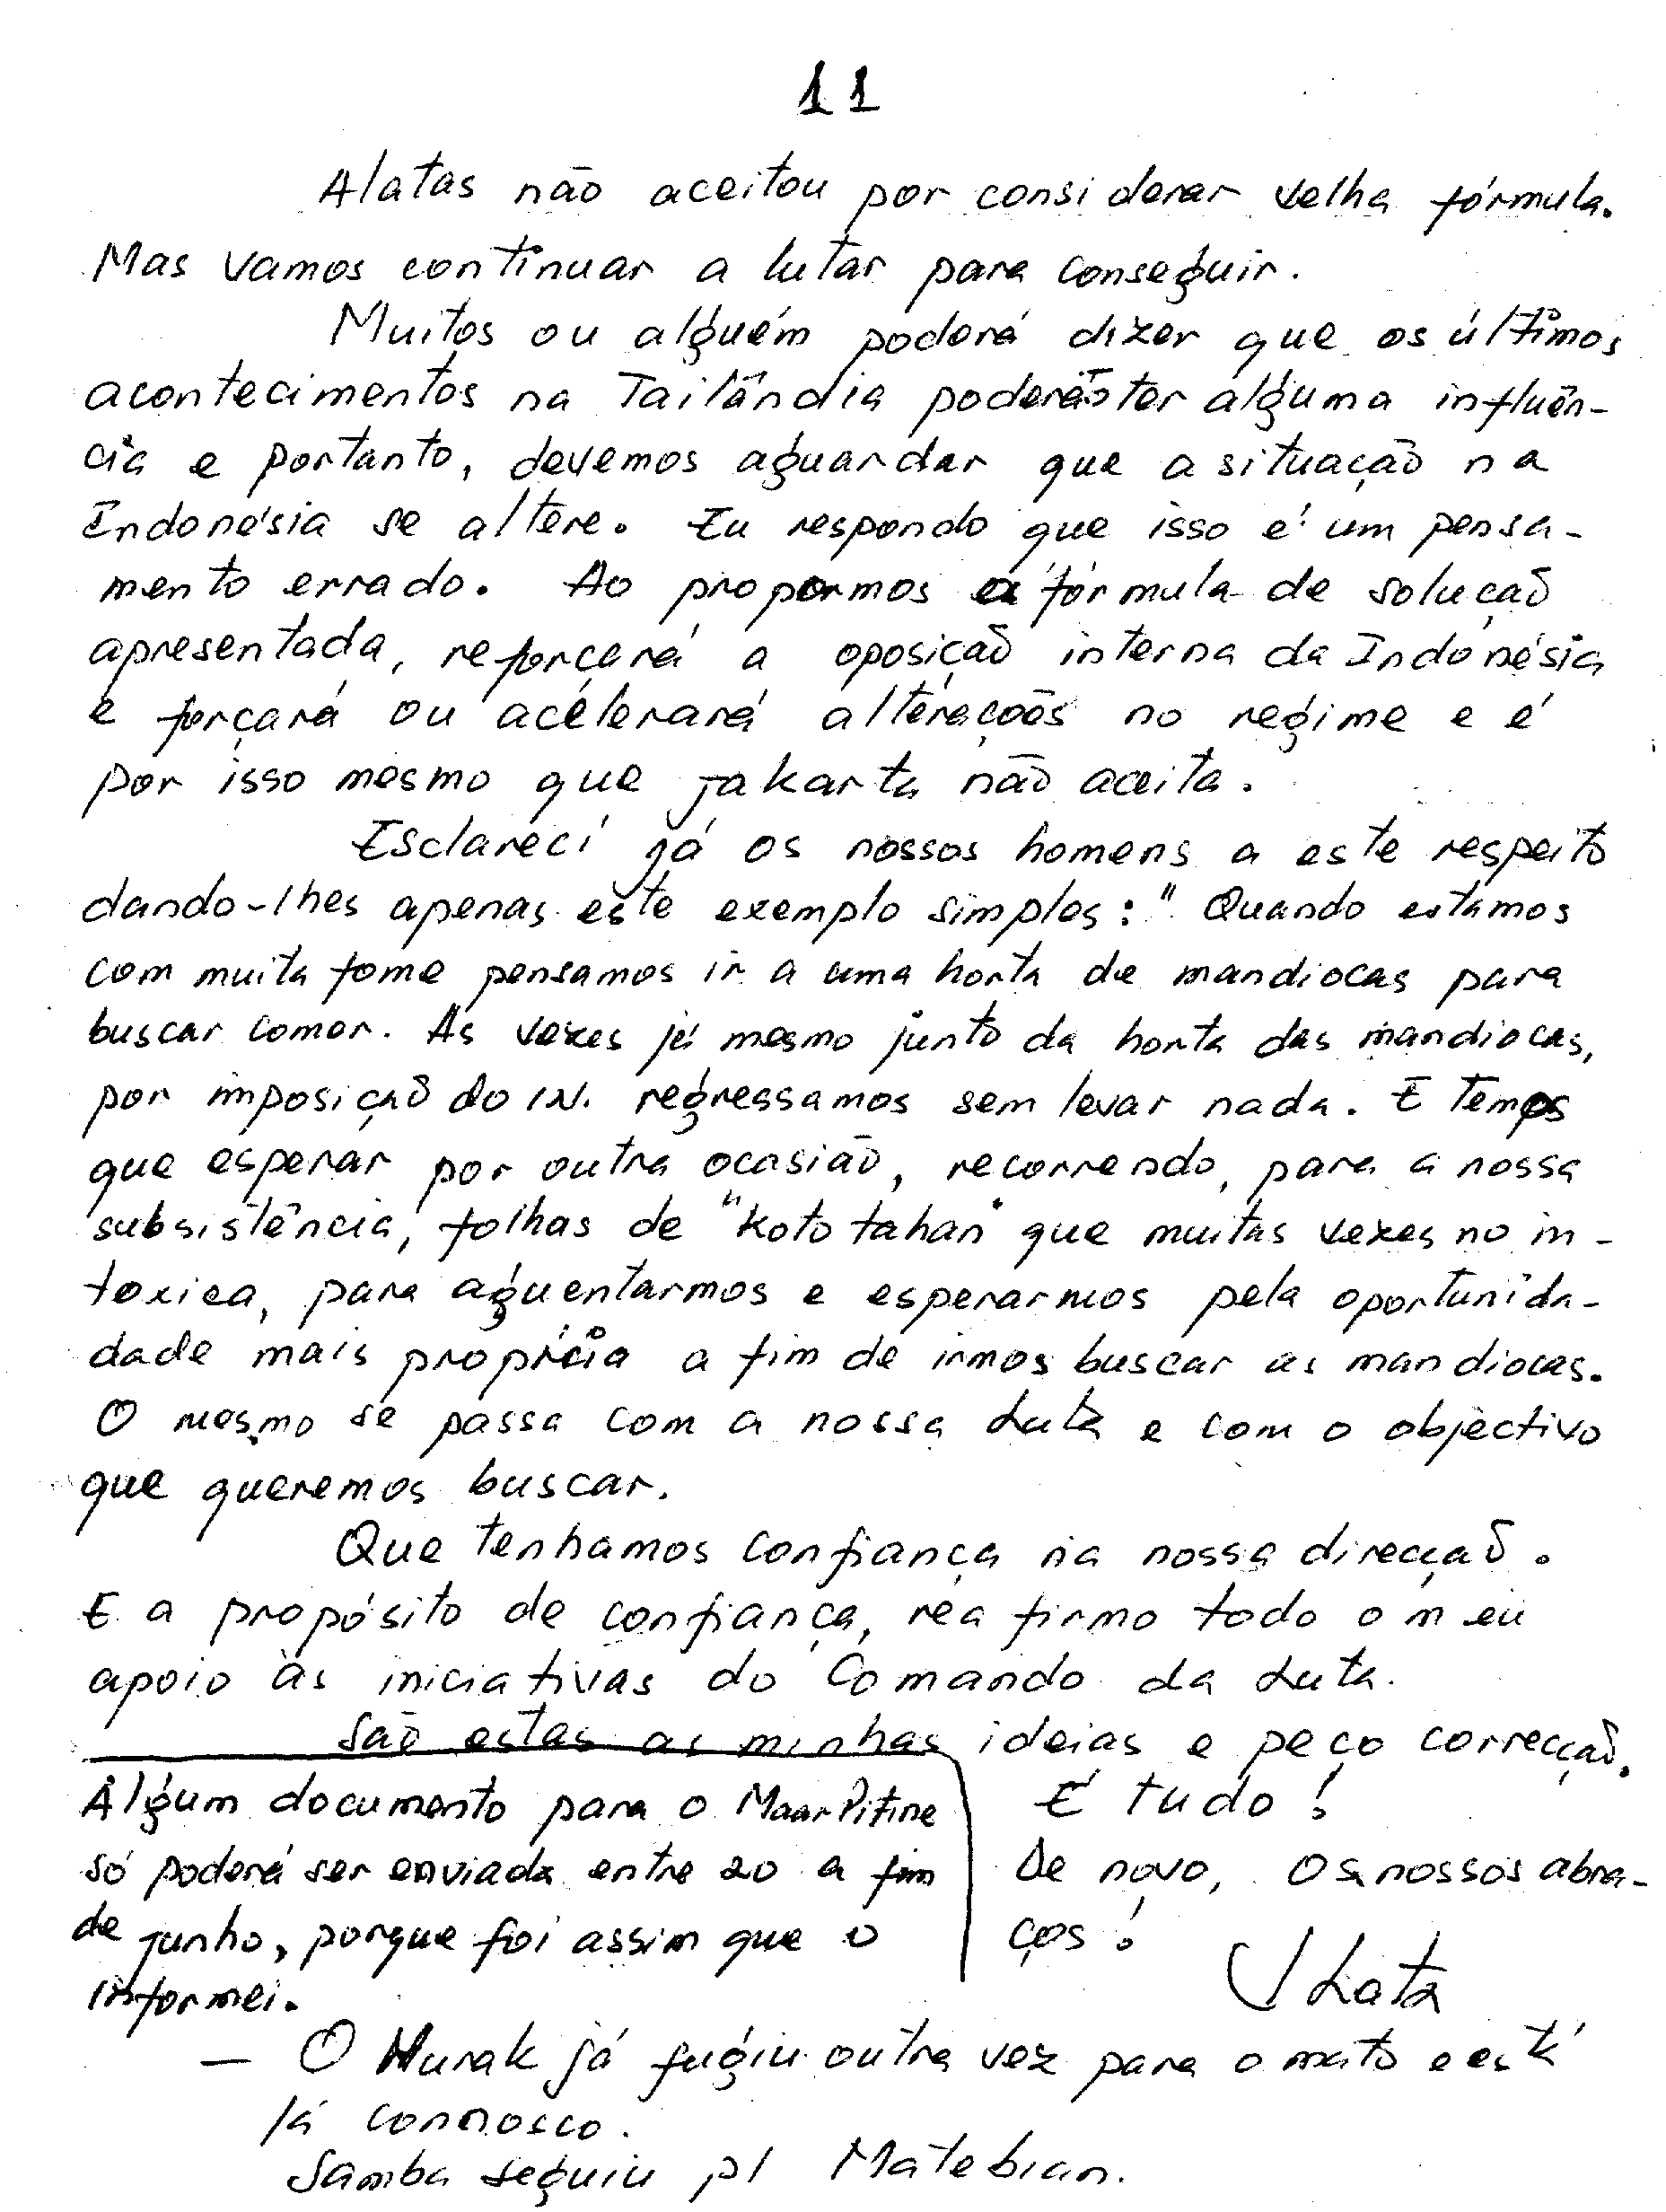 11
Alatas não aceitou por considerar velha fórmula.
Mas vamos continuar a lutar para conseguir.
Muitos ou alguém poderá dizer que os últimos
acontecimentos na Tailândia poderão ter alguma influên-
cia e portanto, devemos aguardar que a situação na
Indonésia se altere. Eu respondo que isso é um pensa-
mento errado. Ao propormos a fórmula de solução
apresentada, reforçará a oposição interna da Indonésia
e forçará ou acelerará alterações no regime e é
por isso mesmo que Jakarta não aceita.
Esclareci já os nossos homens a este respeito
dando-lhes apenas este exemplo simples: "Quando estamos
com muita fome pensamos ir a uma horta de mandiocas para
buscar comer. Às vezes já mesmo junto da horta das mandiocas,
por imposição do IN. regressamos sem levar nada. E temos
que esperar por outra ocasião, recorrendo, para a nossa
subsistência, folhas de "koto tahan" que muitas vezes no in-
toxica, para aguentarmos e esperarmos pela oportunida-
dade mais propícia a fim de irmos buscar as mandiocas.
O mesmo se passa com a nossa Luta e com o objectivo
que queremos buscar.
Que tenhamos confiança na nossa direcção.
E a propósito de confiança, reafirmo todo o meu
apoio às iniciativas do Comando da Luta.
São estas as minhas ideias e peço correcção.
É tudo!
De novo, os nossos abra-
ços!
Algum documento para o Maar Pitine
só poderá ser enviada entre 20 a fim
de junho, porque foi assim que o
informei.
— O Hurak já fugiu outra vez para o mato e está
lá connosco.
Samba seguiu p/ Matebian.